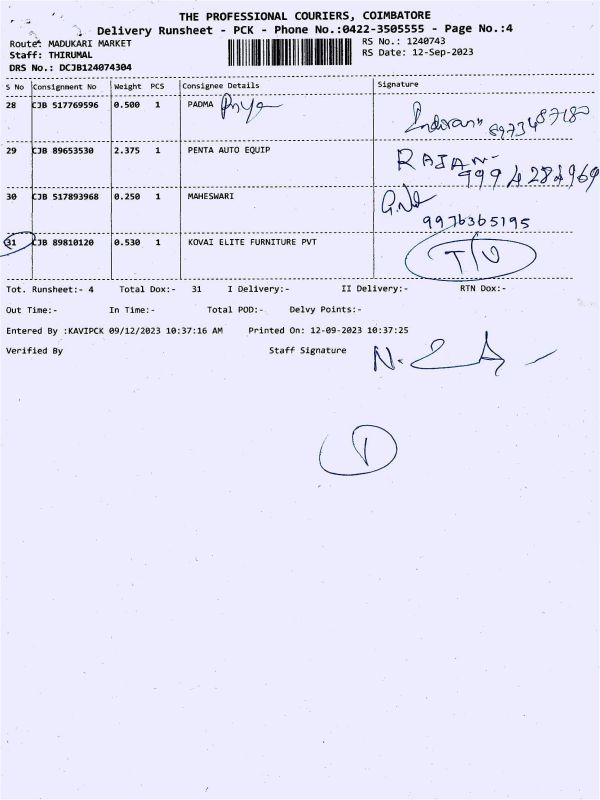 THE PROFESSIONAL COURIERS, COIMBATORE
Delivery Runsheet - PCK - Phone No.:0422-3505555 - Page No.:4
Route: MADUKARI MARKET RS No.: 1240743
Staff: THIRUMAL RS Date: 12-Sep-2023
DRS No.: DCJB124074304
S No Consignment No Weight PCS Consignee Details Signature
28 CJB 517769596 0.500 1 PADMA Priya
8973487180
29 CJB 89653530 2.375 1 PENTA AUTO EQUIP RAJAN
30 CJB 517893968 0.250 1 MAHESWARI
9976365195
31 CJB 89810120 0.530 1 KOVAI ELITE FURNITURE PVT
Tot. Runsheet:- 4 Total Dox:- 31 I Delivery:- II Delivery:- RTN Dox:-
Out Time:- In Time:- Total POD:- Delvy Points:-
Entered By :KAVIPCK 09/12/2023 10:37:16 AM Printed On: 12-09-2023 10:37:25
Verified By Staff Signature